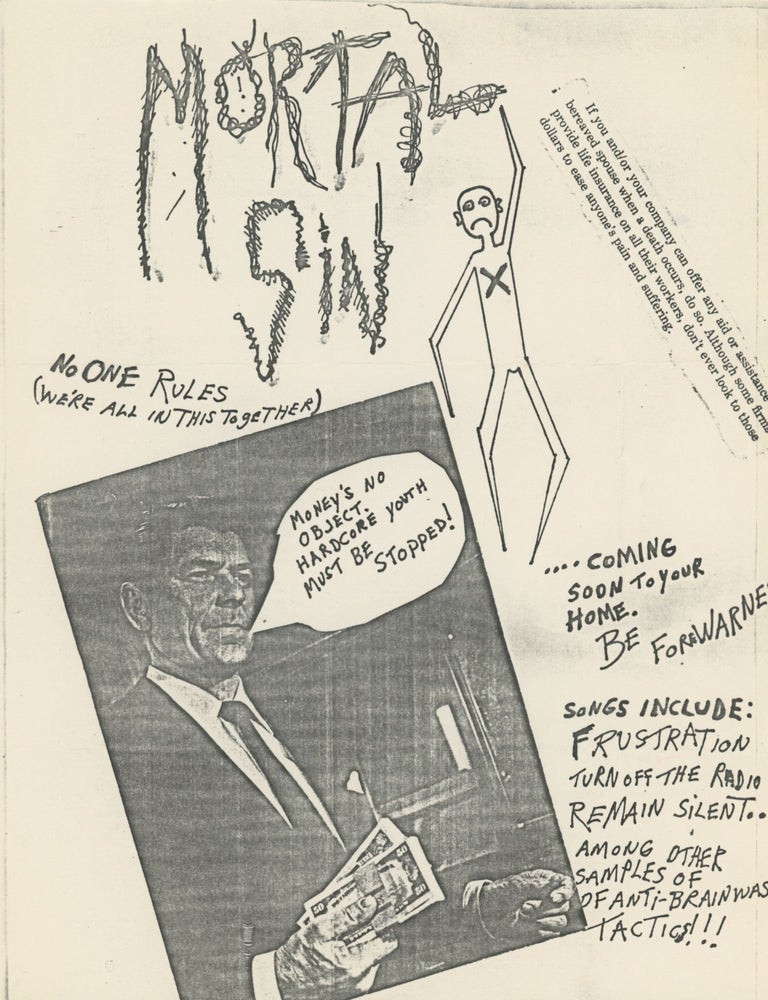 MORTAL
SIN
If you and/or your company can offer any aid or assistance
bereaved spouse when a death occurs, do so. Although some firms
provide life insurance on all their workers, don't ever look to those
dollars to ease anyone's pain and suffering.
X
NO ONE RULES
(WE'RE ALL IN THIS TOGETHER)
MONEY'S NO
OBJECT.
HARDCORE YOUTH
MUST BE
STOPPED!
....COMING
SOON TO YOUR
HOME.
BE FOREWARNE
SONGS INCLUDE:
FRUSTRATION
TURN OFF THE RADIO
REMAIN SILENT..
AMONG OTHER
SAMPLES OF
OF ANTI-BRAINWAS
TACTICS!!!
50
50
50